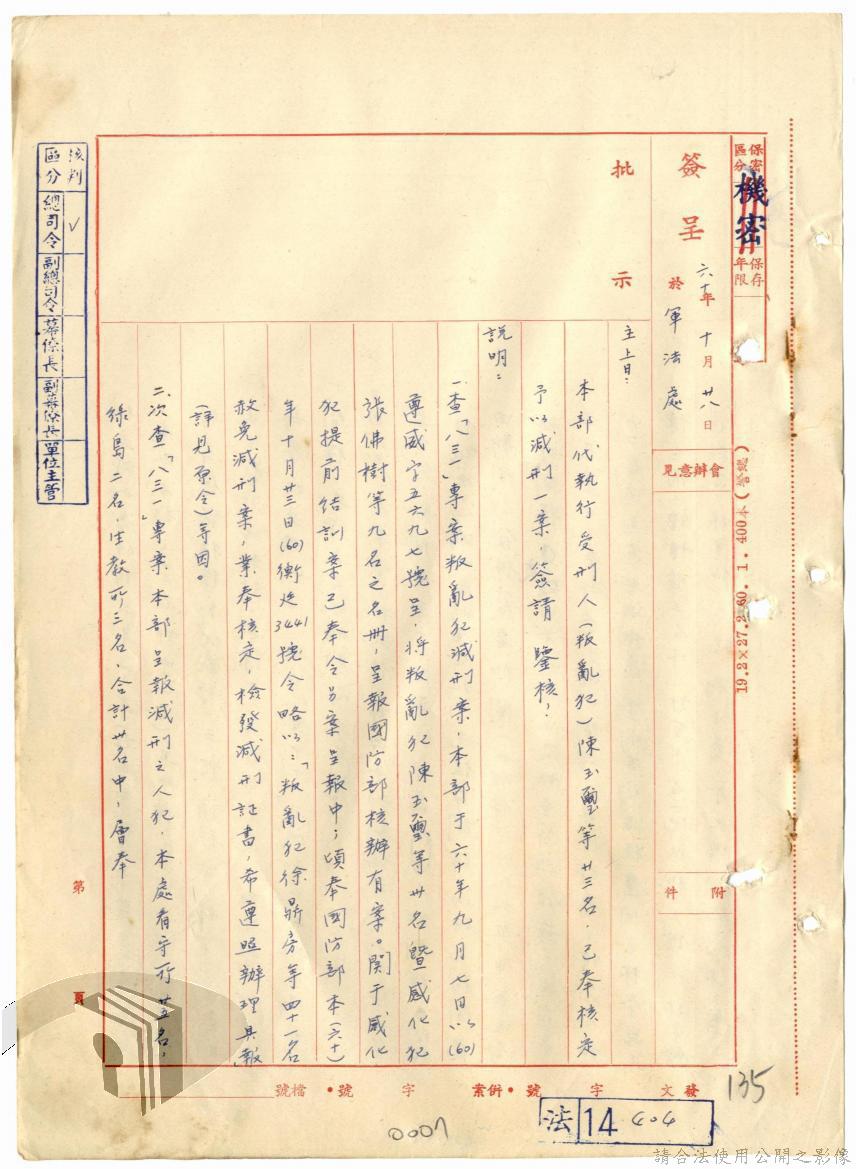 保密區分
機密
保存年限
19.2×27.2 60.1.400本
簽呈
六十年十月廿八日
於軍法處
會辦意見
附件
批示
主旨：
本部代執行受刑人(叛亂犯)陳玉璽等廿三名，已奉核定
予以減刑一案，簽請 鑒核。
說明：
一、查「八三一」專案叛亂犯減刑案，本部于六十年九月七日以(60)
遵威字五六九七號呈，將叛亂犯陳玉璽等卅名暨感化犯
張佛樹等九名之名冊，呈報國防部核辦有案。關于感化
犯提前結訓案已奉令另案呈報中；頃奉國防部本(六十)
年十月廿三日(60)衡廷3441號令略以：「叛亂犯徐鼎房等四十一名
赦免減刑案，業奉核定，檢發減刑証書，希遵照辦理具報」
(詳見原令)等因。
二、次查「八三一」專案本部呈報減刑之人犯，本處看守所廿五名，
綠島二名，生教所三名，合計卅名中，層奉
第 頁
核判區分
總司令 ✓
副總司令
幕僚長
副幕僚長
單位主管
發文 字 號・併案 字 號・檔號
135
法 14 404
0007
請合法使用公開之影像